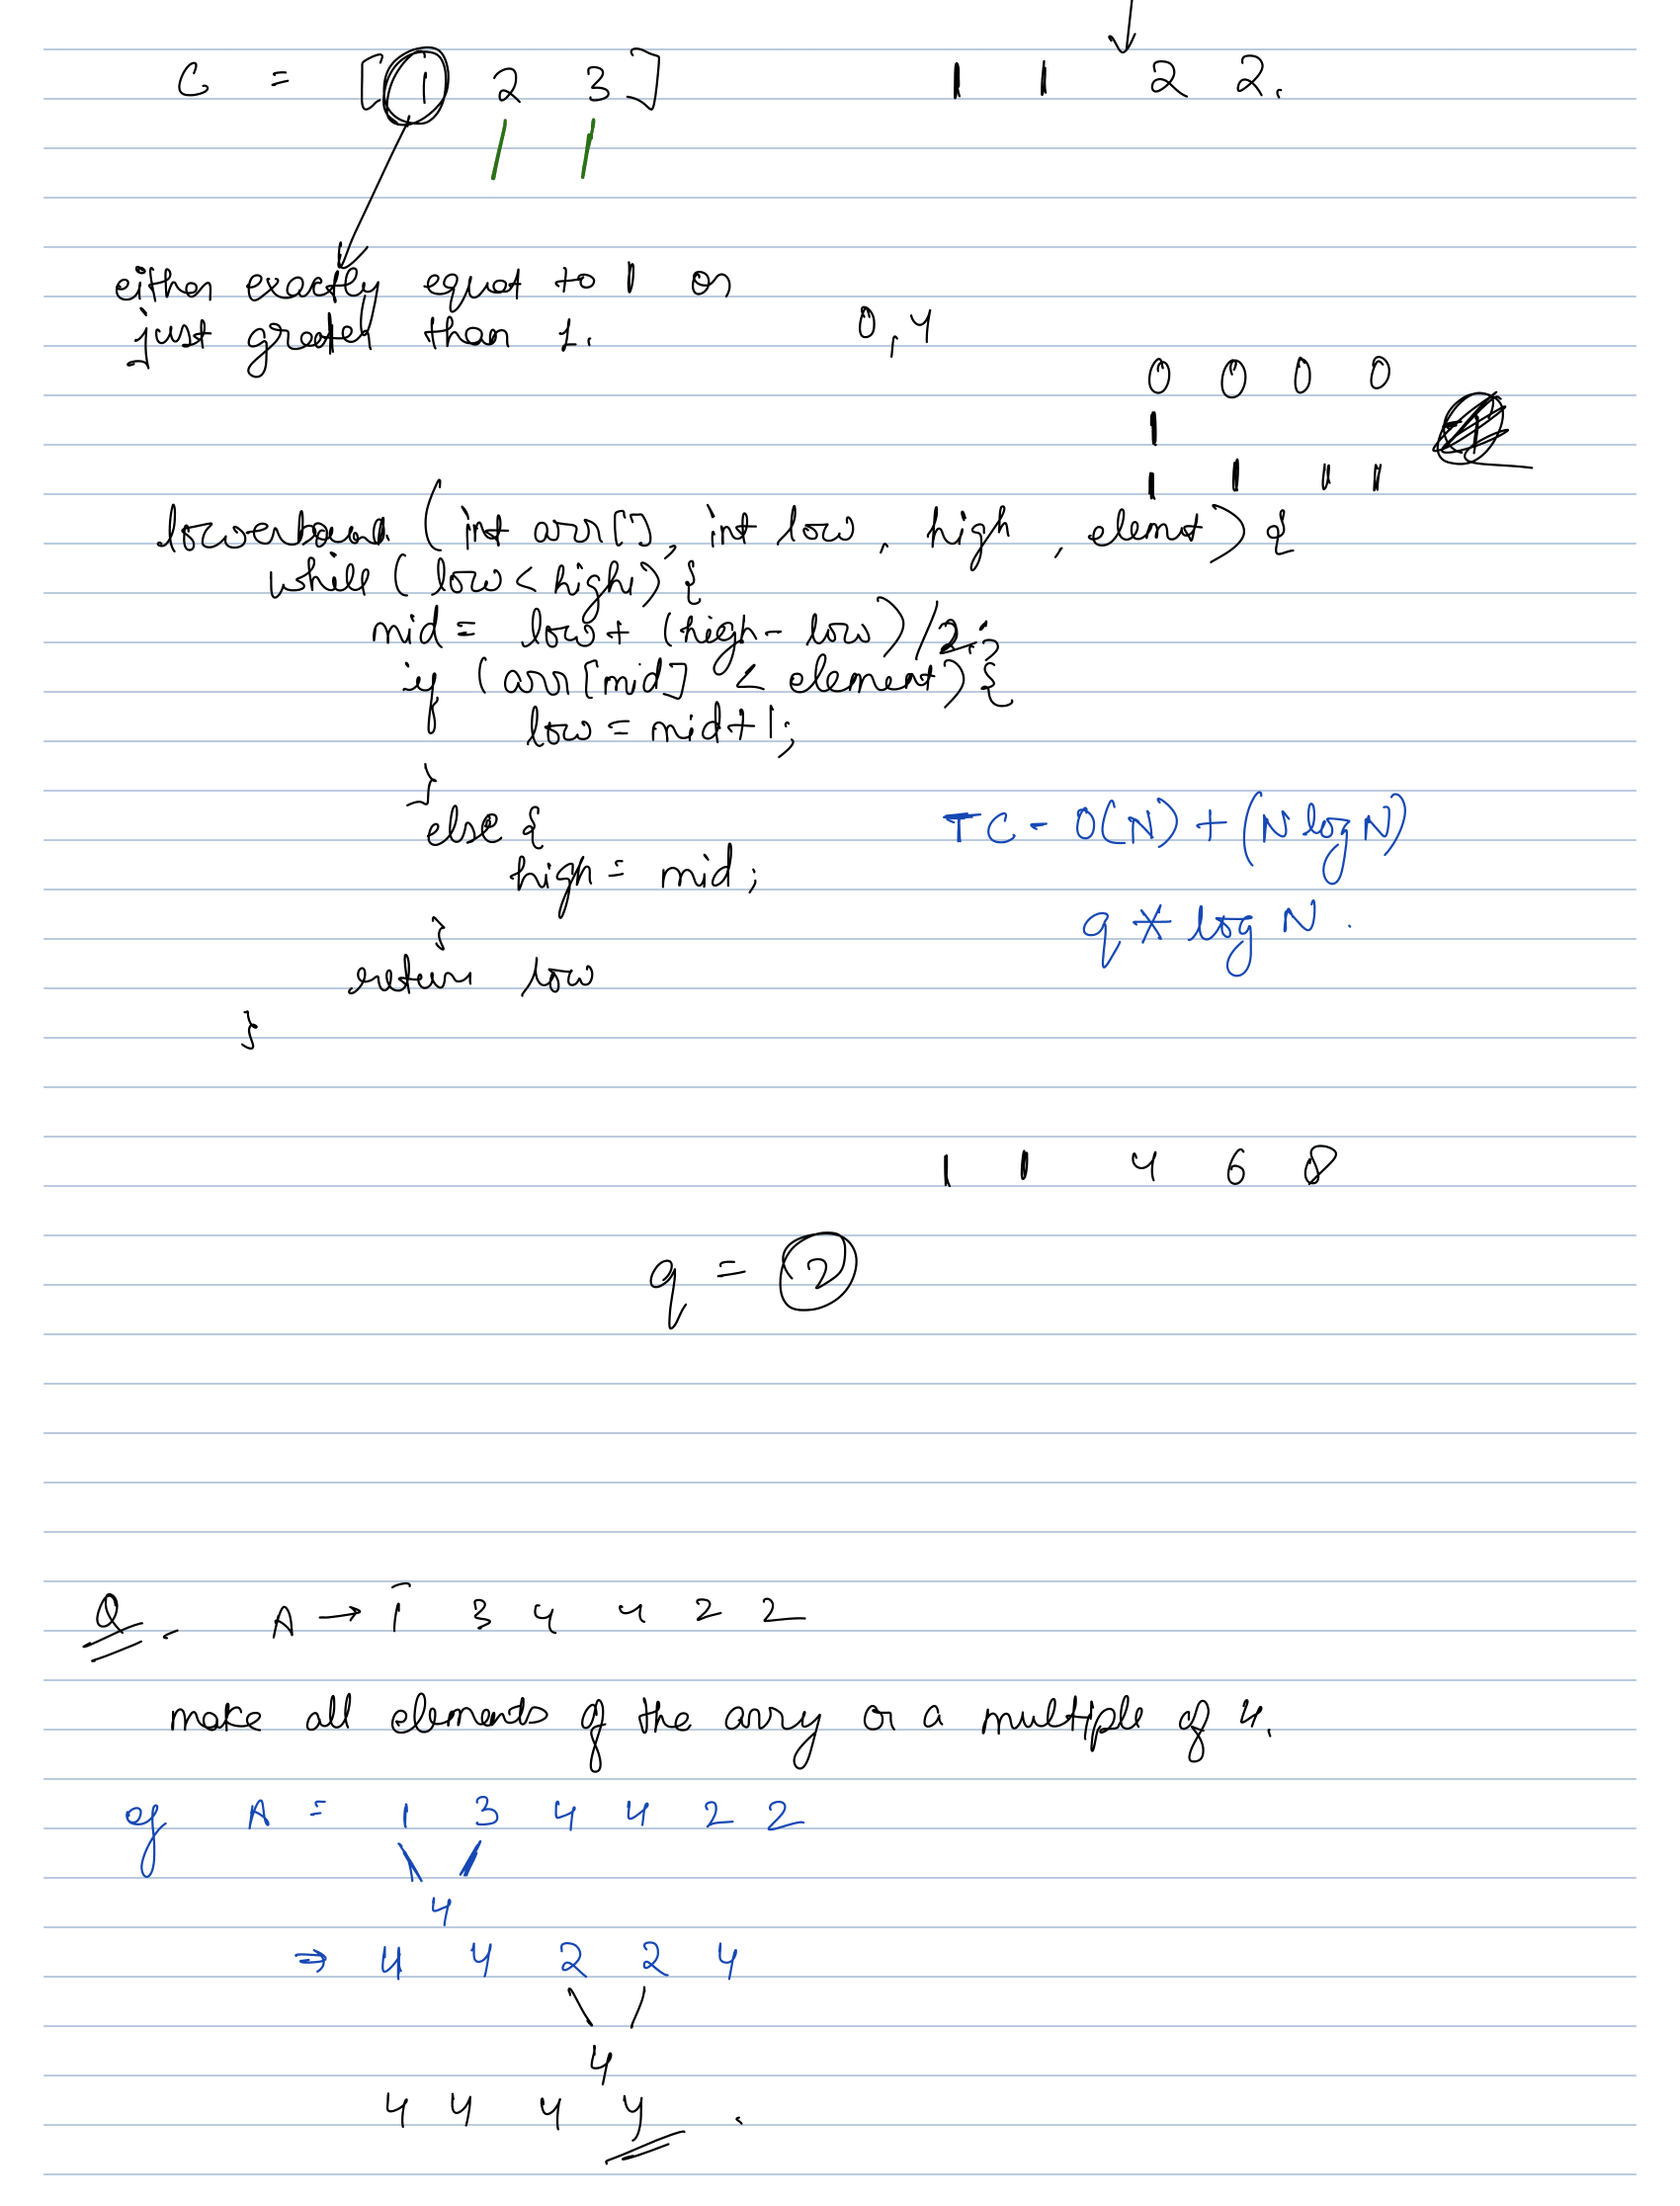 C = [ 1 2 3 ] 1 1 2 2.
either exactly equat to 1 or
just greater than 1. 0, 4
0 0 0 0
1
1 1 1 1
lowerbound (int arr[], int low, high, elemt) {
while (low < high) {
mid = low + (high - low)/2;
if (arr[mid] < element) {
low = mid+1;
}
else {
high = mid;
}
TC - O(N) + (N log N)
q * log N.
return low
}
1 1 4 6 8
q = 2
Q. A → 1 3 4 4 2 2
make all elements of the arry or a multiple of 4.
eg A = 1 3 4 4 2 2
4
⇒ 4 4 2 2 4
4
4 4 4 4 .